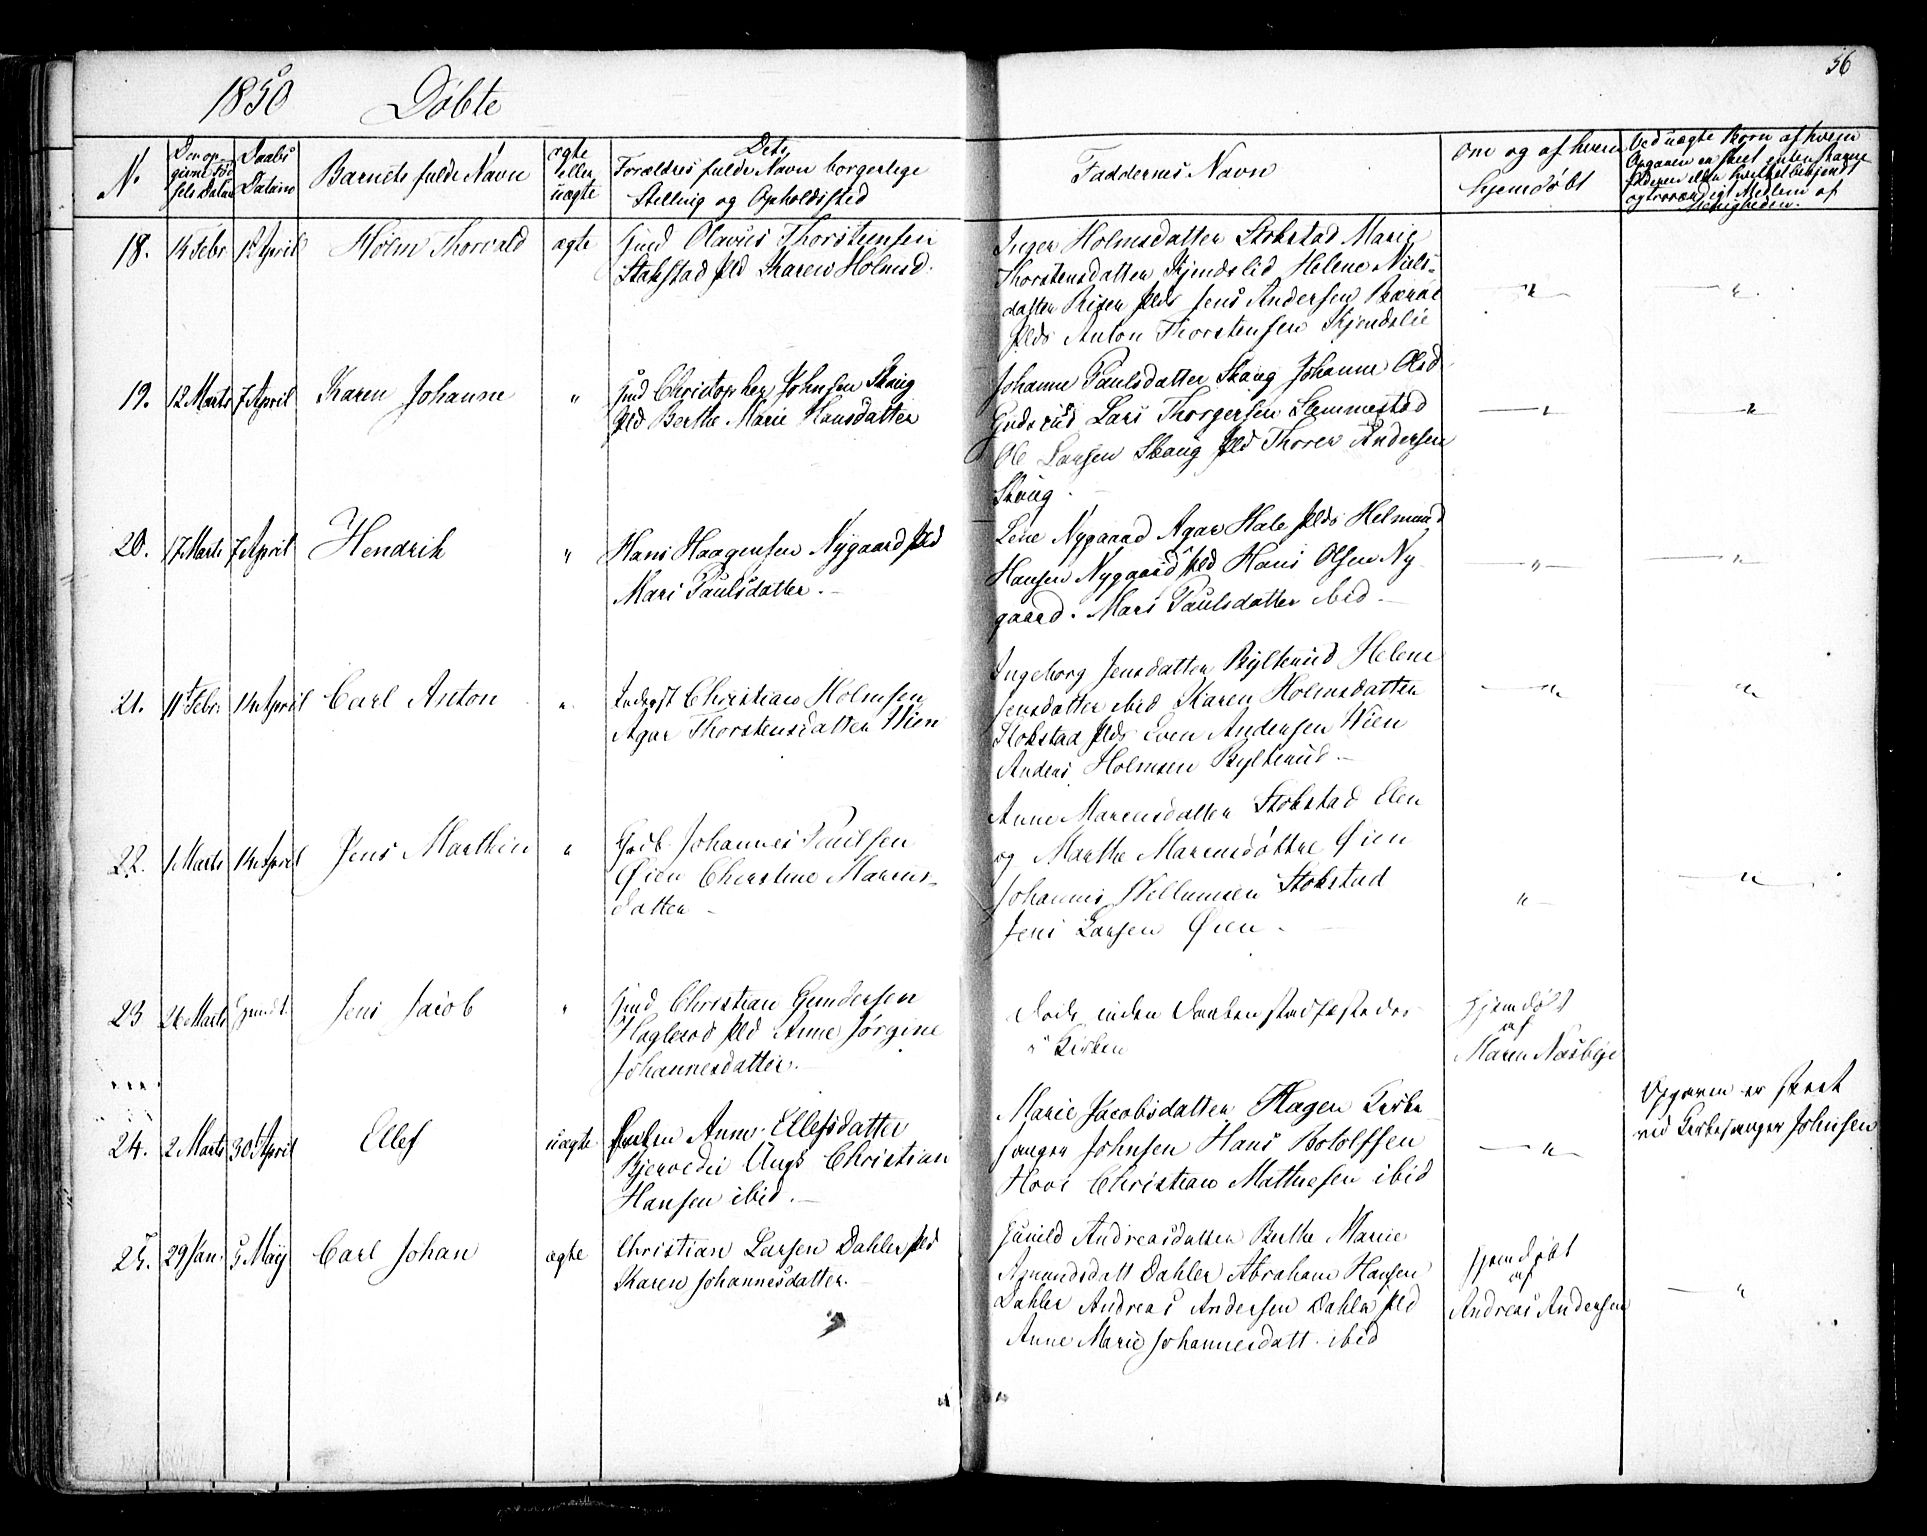 56
1850 Døbte
N.
Den op-
givne Fød-
sels Datum
Daabs
Datum
Barnets fulde Navn
ægte
eller
uægte
Dets
Forældres fulde Navn borgerlige
Stilling og Opholdssted
Faddernes Navn
Om og af hvem
hjemdøbt
Ved uægte Børn af hvem
Opgaven er skeet enten
Faderen eller
Medlem af
Menigheden.
18. 14 Febr 1 April Holm Thorvald ægte
Gmd Olavus Thorstensen
Stokstad Pld Karen Holmsd.
Inger Holmsdatter Stokstad Marie
Thorstensdatter Skjendslid Helene Niels-
datter Risen Plds Jens Andersen
Plds Anton Thorstensen Skjendslie
19. 12 Marts 7 April Karen Johanne "
Gmd Christopher Johnsen Skaug
Pld Berthe Marie Hansdatter
Johanne Paulsdatter Skaug Johanne Olsd
Lars Thorgersen Slemmestad
Ole Larsen Skaug Pld Thorer Andersen
Skaug.
20. 17 Marts 7 April Hendrik "
Hans Haagensen Nygaard Pld
Mari Paulsdatter.
Lene Nygaard Agar Hale Plds Helmund
Hansen Nygaard Pld Hans Olsen Ny-
gaard. Mari Paulsdatter ibid
21. 11 Febr. 14 April Carl Anton "
Inderst Christian Holmsen
Agar Thorstensdatter Wien
Ingeborg Jensdatter Bylterud Helene
Jensdatter ibid Karen Holmsdatter
Stokstad Plds Even Andersen Wien
Anders Holmsen Bylterud
22. 1 Marts 14 April Jens Marthin "
Grdb. Johannes Paulsen
Øien Christine Marens-
datter
Anne Marensdatter Stokstad Elen
og Marthe Marensdøttre Øien
Johannes Willumsen Stokstad
Jens Larsen Øien.
23 26 Marts Jens Jacob "
Gmd Christian Gundersen
Haglerød Pld Anne Jørgine
Johannesdatter.
Døde inden Daaben stadfæstedes
i Kirken
Hjemdøbt
af
Maren Næsbye
24. 2 Marts 30 April Ellef uægte
Anne Ellefsdatter
Ungk Christian
Hansen ibid.
Marie Jacobsdatter Hagen Kirke-
sanger Johnsen Hans Botolfsen
Hove Christian Mathiesen ibid
Opgaven er skeet
ved Kirkesanger Johnsen
25. 29 Jan. 5 Maij Carl Johan ægte
Christian Larsen Dahler Pld
Karen Johannesdatter.
Gunild Andreasdatter Berthe Marie
Amundsdatt Dahler Abraham Hansen
Dahler Andreas Andersen Dahler Pld
Anne Marie Johannesdatt. ibid
Hjemdøbt
af
Andreas Andersen